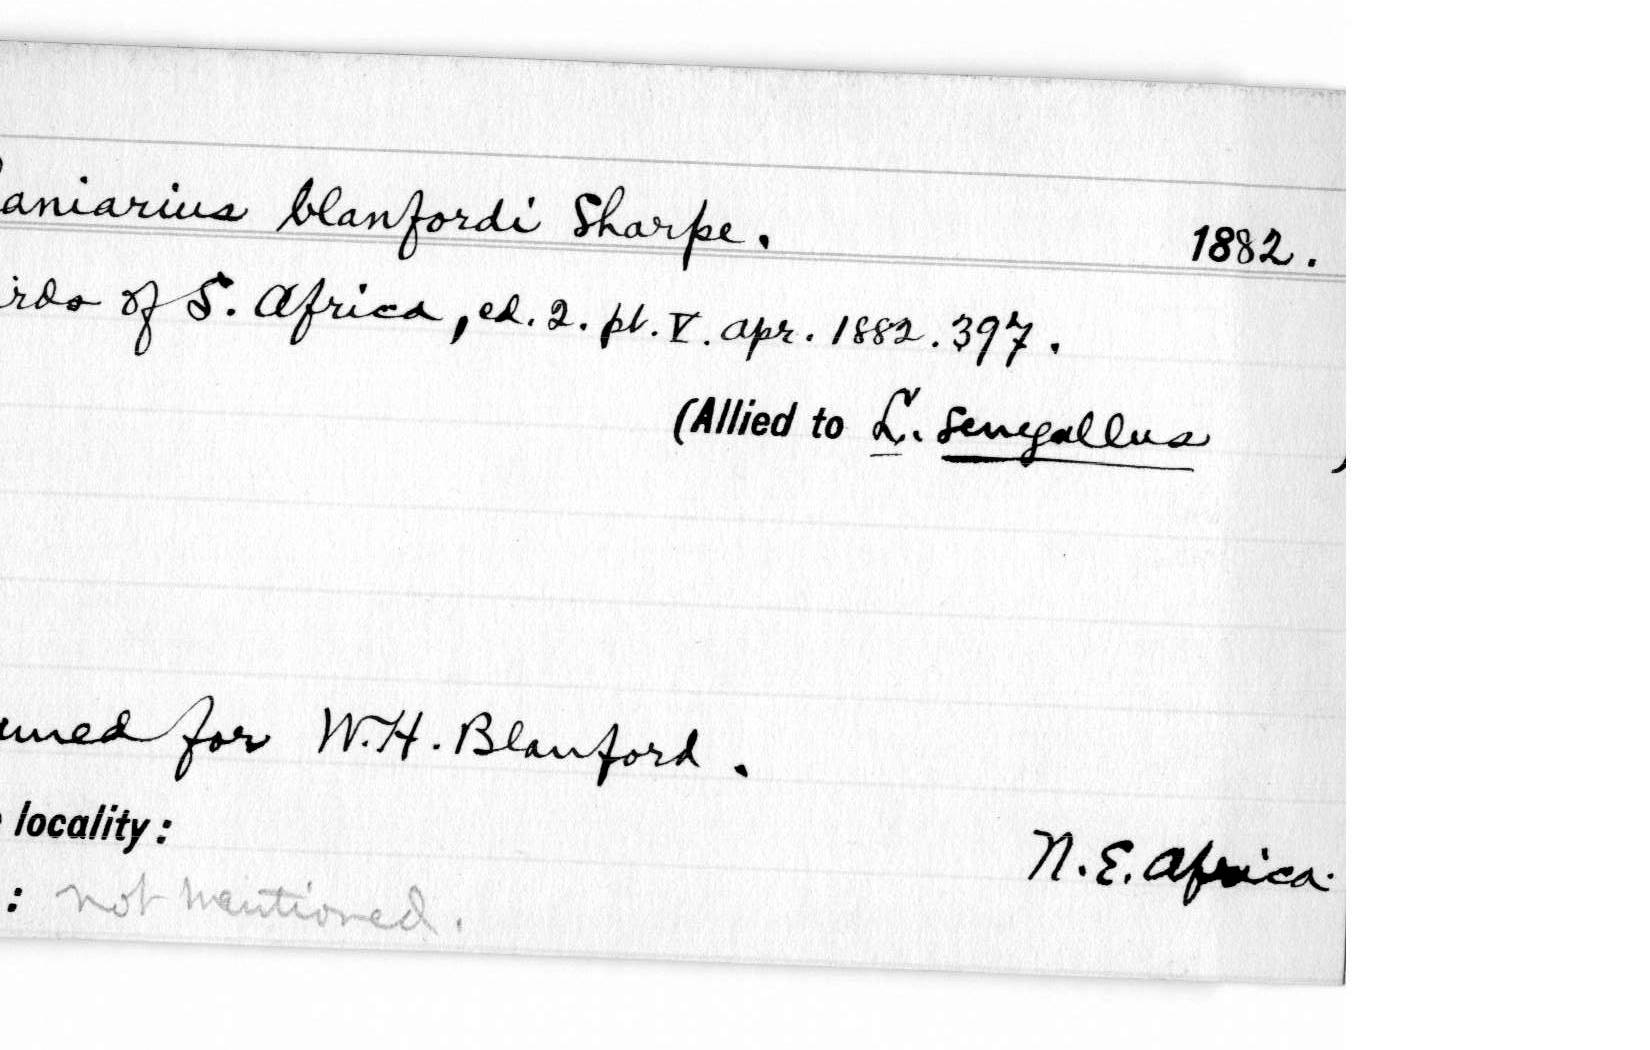 aniarius blanfordi Sharpe. 1882.
irds of S. Africa, ed. 2. pt. V. apr. 1882. 397.
(Allied to L. Senegallus )
amed for W.H. Blanford.
locality: N.E. Africa.
: not mentioned.